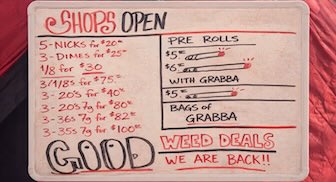 SHOPS OPEN
5-NICKS for $20
3-DIMES for $25
1/8 for $30
3/1/8s for $75
3-20s for $40
3-20s 7g for $80
3-36s 7g for $82
3-35s 7g for $100
PRE ROLLS
$5
$6
WITH GRABBA
$5
BAGS of
GRABBA
GOOD WEED DEALS
WE ARE BACK!!